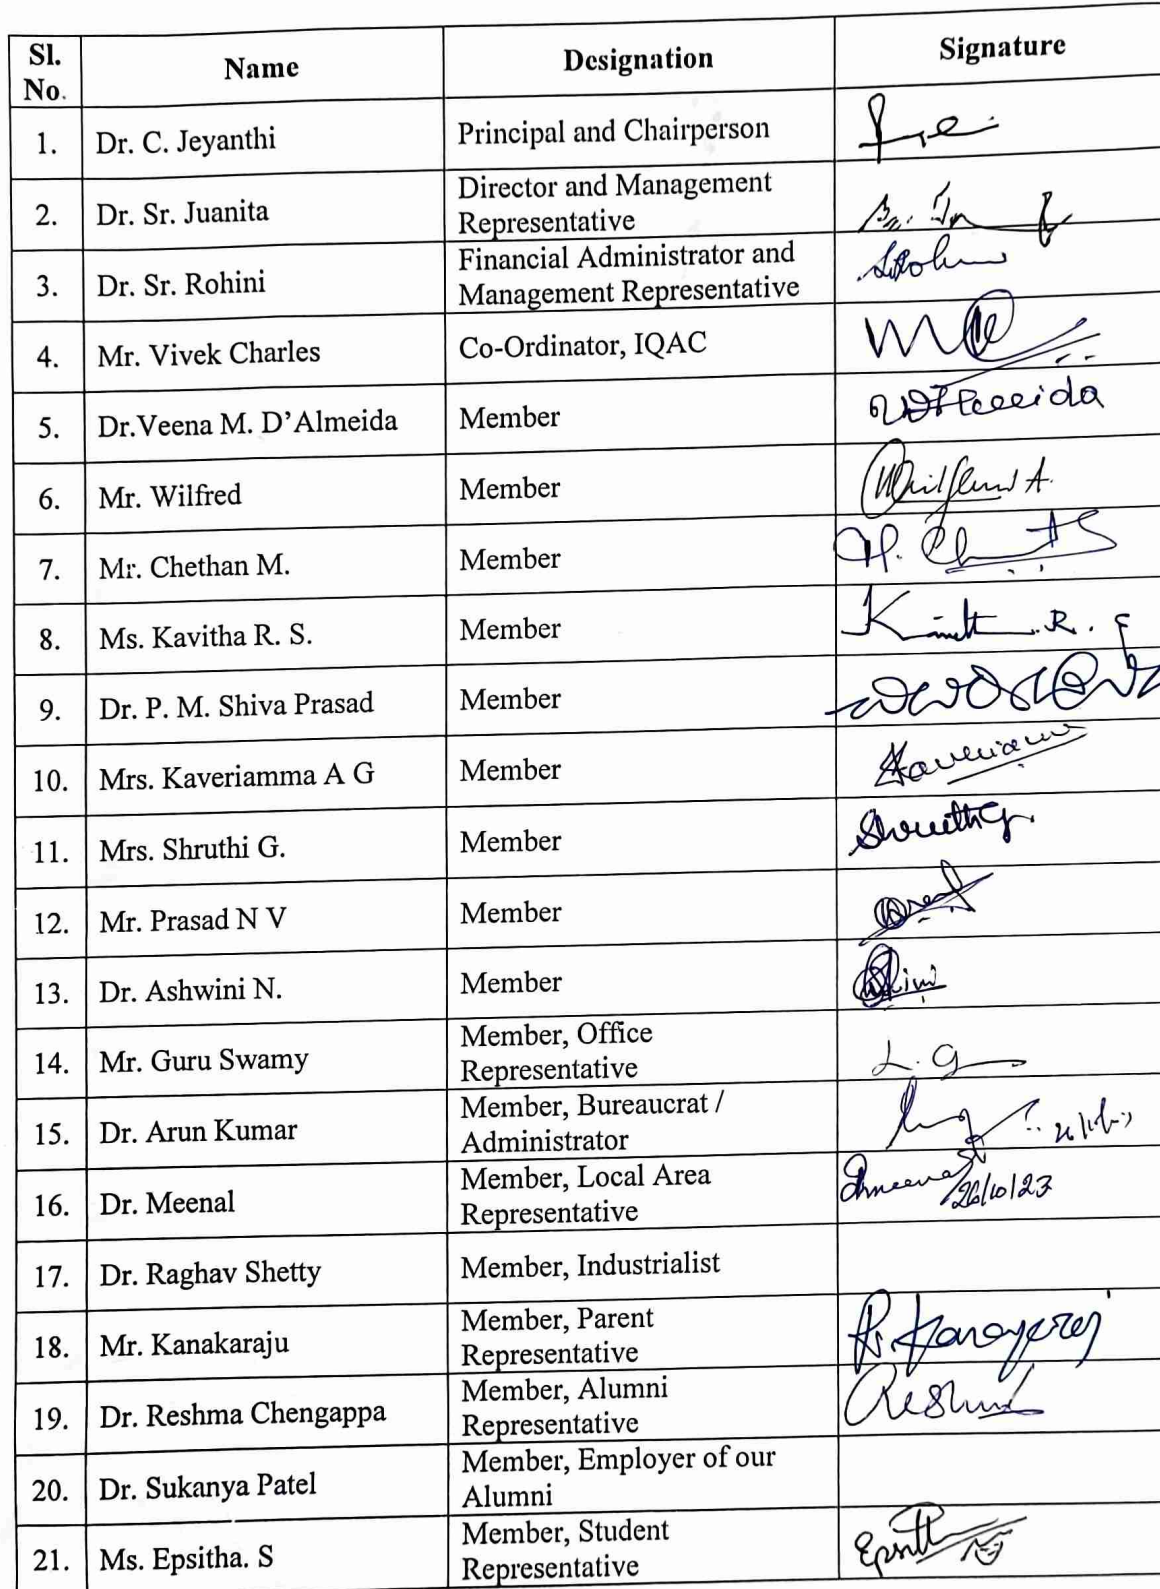 Sl. No. Name Designation Signature
1. Dr. C. Jeyanthi Principal and Chairperson
2. Dr. Sr. Juanita Director and Management
Representative
3. Dr. Sr. Rohini Financial Administrator and
Management Representative
4. Mr. Vivek Charles Co-Ordinator, IQAC
5. Dr.Veena M. D'Almeida Member
6. Mr. Wilfred Member
7. Mr. Chethan M. Member
8. Ms. Kavitha R. S. Member
9. Dr. P. M. Shiva Prasad Member
10. Mrs. Kaveriamma A G Member
11. Mrs. Shruthi G. Member
12. Mr. Prasad N V Member
13. Dr. Ashwini N. Member
14. Mr. Guru Swamy Member, Office
Representative
15. Dr. Arun Kumar Member, Bureaucrat /
Administrator
16. Dr. Meenal Member, Local Area
Representative 26/10/23
17. Dr. Raghav Shetty Member, Industrialist
18. Mr. Kanakaraju Member, Parent
Representative
19. Dr. Reshma Chengappa Member, Alumni
Representative
20. Dr. Sukanya Patel Member, Employer of our
Alumni
21. Ms. Epsitha. S Member, Student
Representative